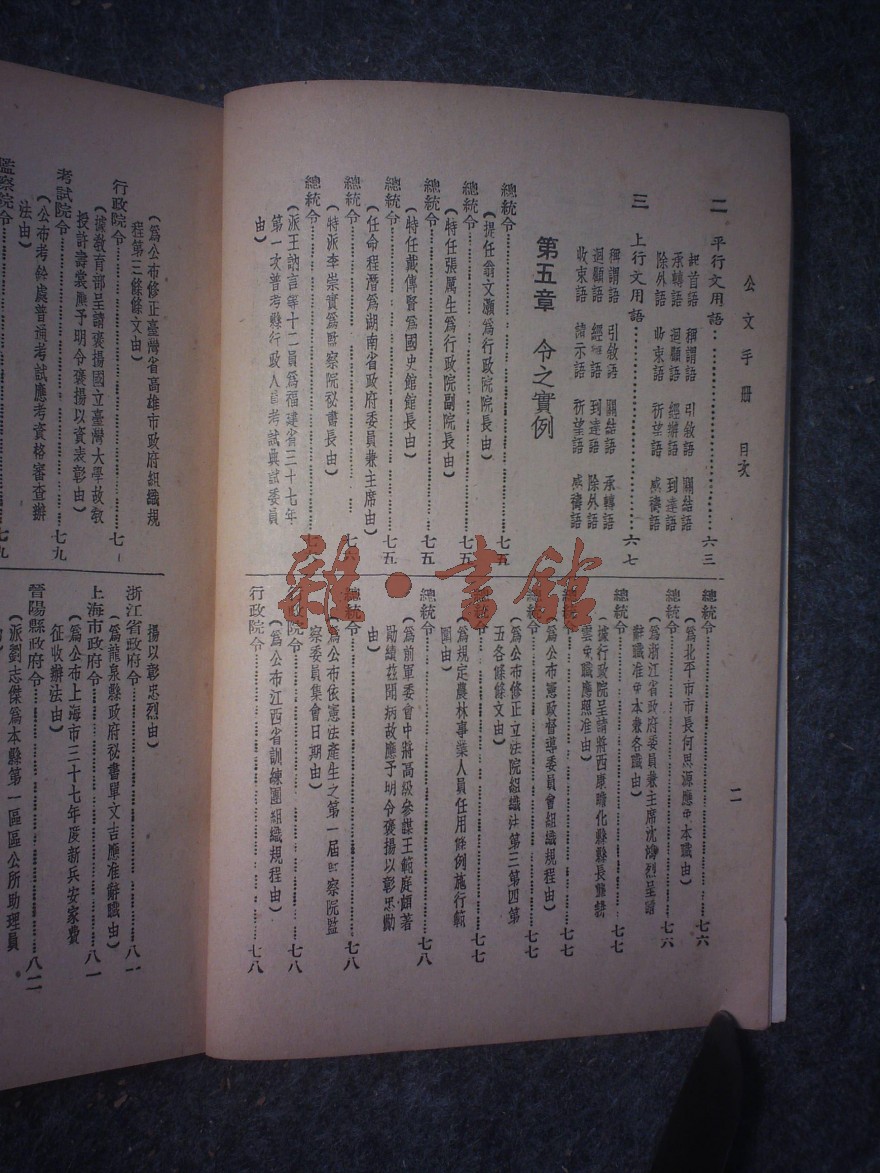 公文手册 目次 二
二 平行文用語……六三
起首語 稱謂語 引敘語 關結語
承轉語 迴顧語 經辦語 到達語
除外語 收束語 祈望語 感禱語
三 上行文用語……六七
稱謂語 引敘語 關結語 承轉語
迴顧語 經語 到達語 除外語
收束語 請示語 祈望語 感禱語
第五章 令之實例
總統令……七五
(提任翁文灝爲行政院院長由)
總統令……七五
(特任張厲生爲行政院副院長由)
總統令……七五
(特任戴傳賢爲國史館館長由)
總統令……七五
(任命程潛爲湖南省政府委員兼主席由)
總統令……七六
(特派李崇實爲監察院祕書長由)
總統令……七六
(派王訥言等十二員爲福建省三十七年
第一次普考縣行政人員考試典試委員
由)
總統令……七六
(爲北平市市長何思源應免本職由)
總統令……七六
(爲浙江省政府委員兼主席沈鴻烈呈請
辭職准免本兼各職由)
總統令……七七
(據行政院呈請將西康瞻化縣縣長
免職應照准由)
總統令……七七
(爲公布憲政督導委員會組織規程由)
總統令……七七
(爲公布修正立法院組織法第三第四第
五各條條文由)
總統令……七七
(爲規定農林事業人員任用條例施行範
圍由)
總統令……七八
(爲前軍委會中將高級參謀王範庭頗著
勛績茲聞病故應予明令褒揚以彰忠勳
由)
總統令……七八
(爲公布依憲法產生之第一屆監察院監
察委員集會日期由)
行政院令……七八
(爲公布江西省訓練團組織規程由)
行政院令……七八
(爲公布修正臺灣省高雄市政府組織規
程第三條條文由)
行政院令……七
(據教育部呈請褒揚國立臺灣大學故教
授許壽裳應予明令褒揚以資表彰由)
考試院令……七九
(公布考銓處普通考試應考資格審查辦
法由)
監察院令……七九
揚以彰忠烈由)
浙江省政府令……八一
(爲龍泉縣政府祕書單文吉應准辭職由)
上海市政府令……八一
(爲公布上海市三十七年度新兵安家費
征收辦法由)
晉陽縣政府令……八二
(派劉志傑爲本縣第一區區公所助理員
雜·書館